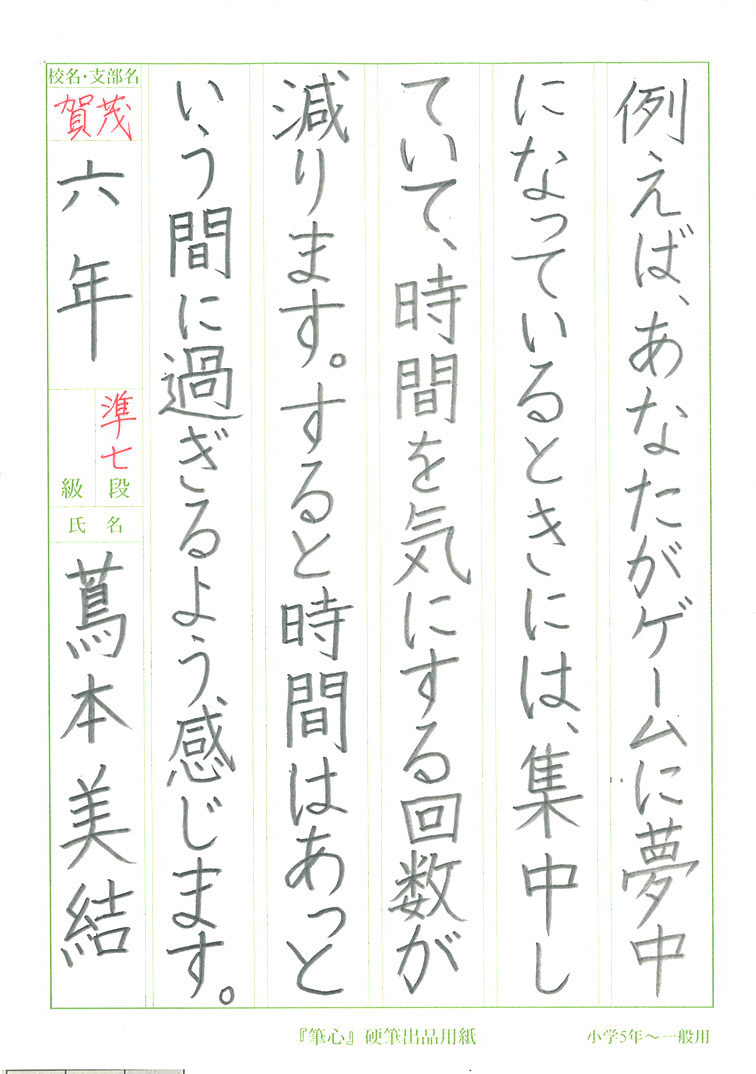 例えば、あなたがゲームに夢中
になっているときには、集中し
ていて、時間を気にする回数が
減ります。すると時間はあっと
いう間に過ぎるよう、感じます。
校名・支部名
賀茂
六年
準七
級 段
氏名
蔦本美結
『筆心』硬筆出品用紙
小学5年〜一般用